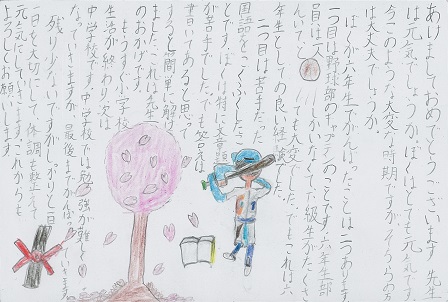 あけましておめでとうございます。先生
は元気でしょうか。ぼくはとても元気です。
今このような大変な時期ですがそちらの方
は大丈夫でしょうか。
ぼくが六年生でがんばったことは二つあります。
一つ目は野球部のキャプテンのことです。六年生部
員は一人しかいなくて下級生がたくさ
んいてとても大変でした。でもこれも六
年生としての良い経験でした。
二つ目は苦手だった
国語をこくふくしたこ
とです。ぼくは特に文章題
が苦手でした。でも答えは
書いてあると思って
すると簡単に解け
ました。これは先生
のおかげです。
もうすぐ小学校
生活が終わり次は
中学校です。中学校では勉強が難しく
なっていきますが、最後まで がんばっていきます。
残り少ないですがしっかりと一日
一日を大切にして、体調も整えて
元気にしていきます。これからも
よろしくお願いします。